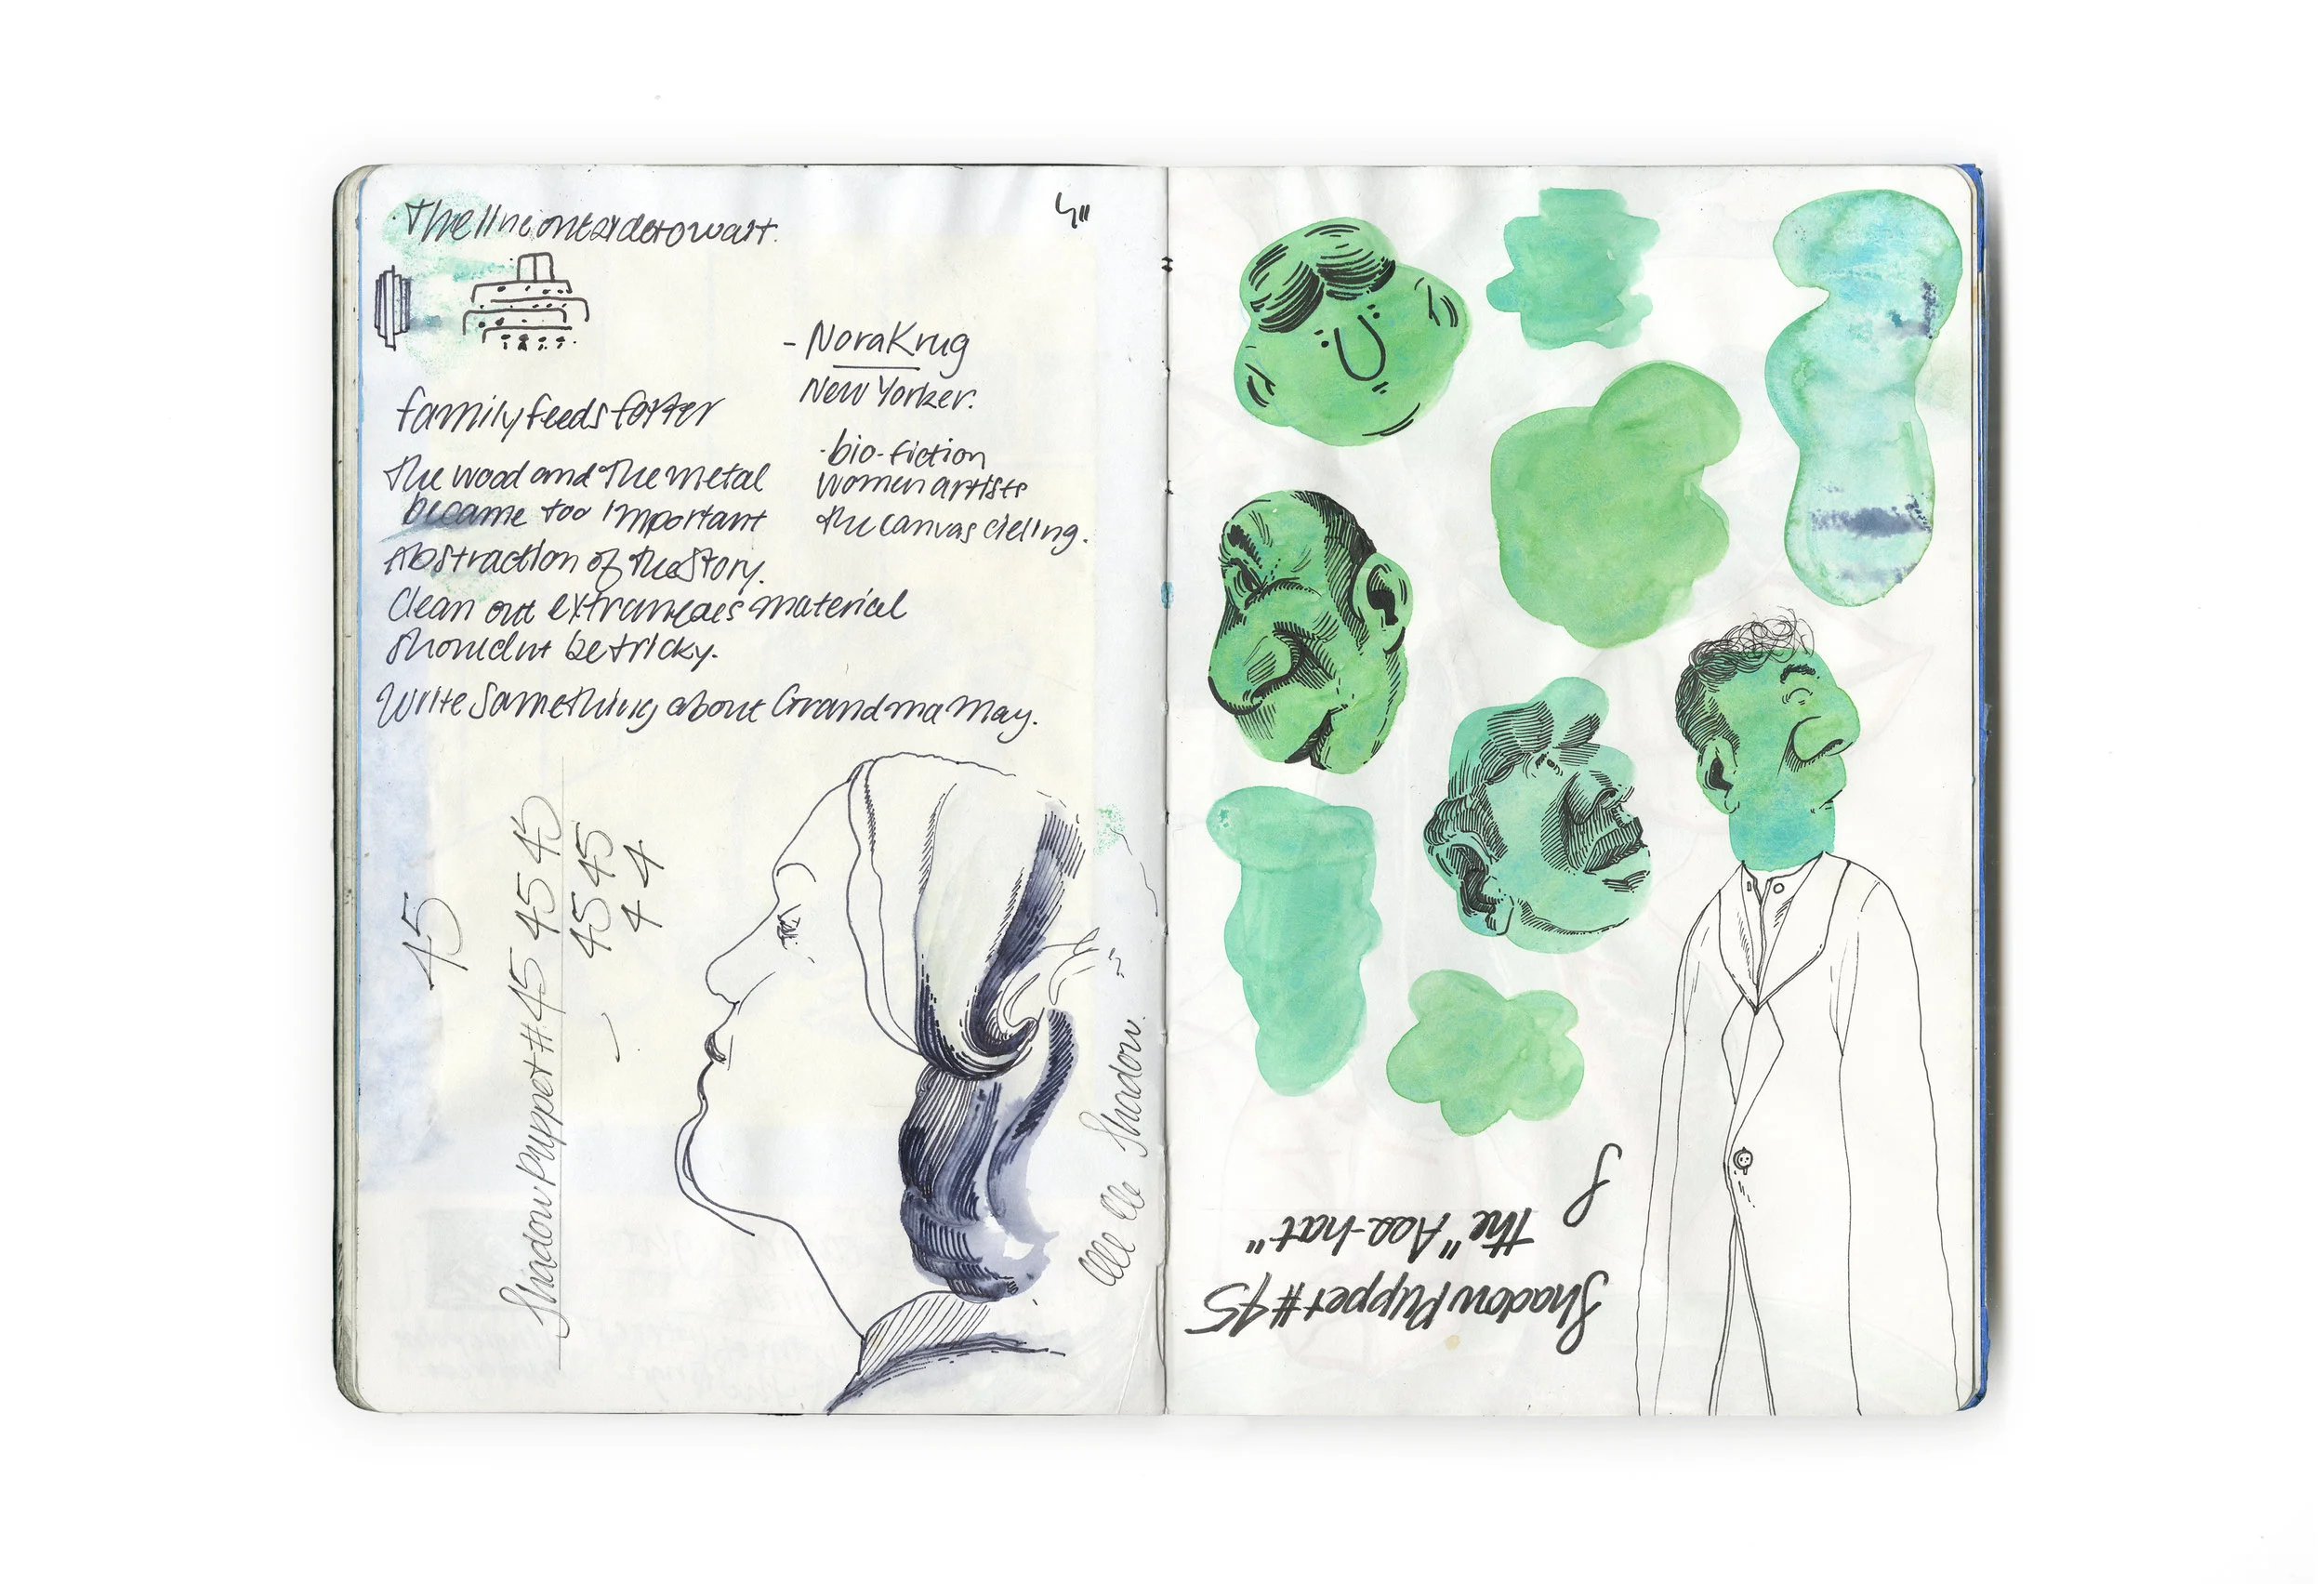 family feeds
- Nora Krug
New Yorker.
·bio-fiction
women artists
the canvas cieling.
The wood and the metal
became too important
Abstraction of the story.
Clean out material
shouldnt be tricky.
Write Something about Grandma May.
45
Shadow Puppet #45 45 45
45 45
4 4
Shadow.
Shadow Puppet #45
the "Ass-hat"